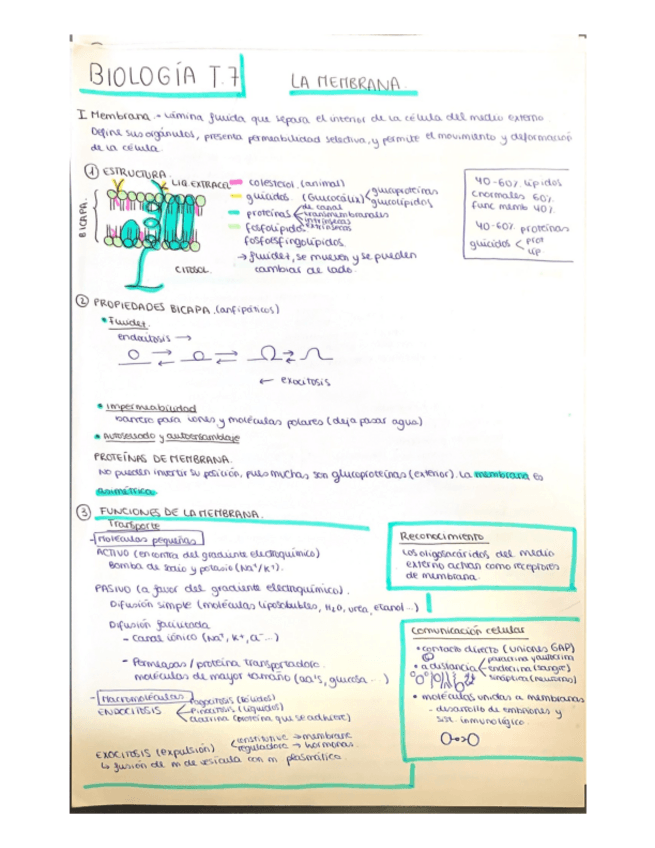 BIOLOGÍA T.7
LA MEMBRANA.
I Membrana.- Lámina fluida que separa el interior de la célula del medio externo.
Define sus orgánulos, presenta permeabilidad selectiva, y permite el movimiento y deformación
de la célula.
① ESTRUCTURA.
LIQ. EXTRACEL
BICAPA.
CITOSOL.
colesterol (animal)
glúcidos (Glucocálix) glucoproteínas
glucolípidos
proteínas de canal
transmembranales
intrínsecas
extrínsecas
fosfolípidos
fosfoesfingolípidos
→ fluidez, se mueven y se pueden
cambiar de lado.
40-60% lípidos
cnormales 60%
func memb 40%
40-60% proteínas
glúcidos < prot
líp
② PROPIEDADES BICAPA. (anfipáticos)
• Fluidez.
endocitosis →
← exocitosis
• Impermeabilidad
barrera para iones y moléculas polares (deja pasar agua)
• Autosellado y autoensamblaje
PROTEÍNAS DE MEMBRANA.
No pueden invertir su posición, pues muchas son glucoproteínas (exterior). La membrana es
asimétrica.
③ FUNCIONES DE LA MEMBRANA.
Transporte
- Moléculas pequeñas
ACTIVO (en contra del gradiente electroquímico)
Bomba de sodio y potasio (Na⁺/K⁺).
PASIVO (a favor del gradiente electroquímico).
Difusión simple (moléculas liposolubles, H₂O, urea, etanol...)
Difusión facilitada
- Canal iónico (Na⁺, K⁺, Cl⁻...)
- Permeasas / proteína transportadora.
moléculas de mayor tamaño (aa's, glucosa...)
- Macromoléculas
ENDOCITOSIS
Fagocitosis (sólidos)
Pinocitosis (líquidos)
clatrina (proteína que se adhiere)
EXOCITOSIS (expulsión)
constitutive → membrane
reguladora → hormonas.
↳ fusión de m de vesícula con m plasmático.
Reconocimiento
Los oligosacáridos del medio
externo actúan como receptores
de membrana.
Comunicación celular
• contacto directo (uniones GAP)
• a distancia
paracrina y autocrina
endocrina (sangre)
sináptica (neuronas)
• moléculas unidas a membranas
- desarrollo de embriones y
sist. inmunológico.